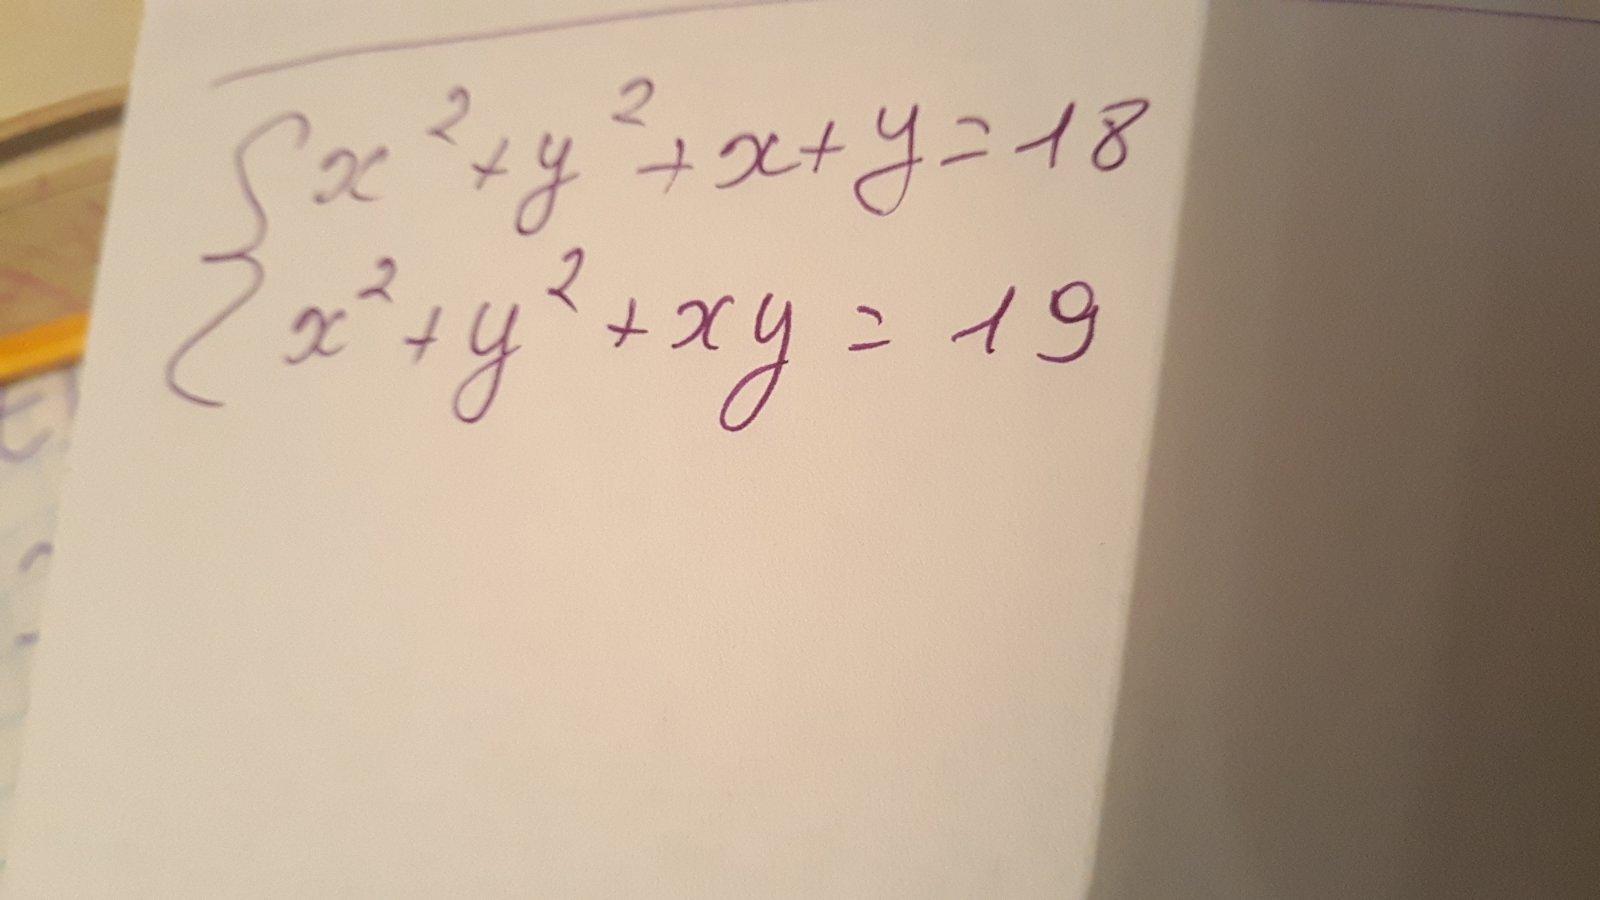 x²+y²+x+y=18
x²+y²+xy=19